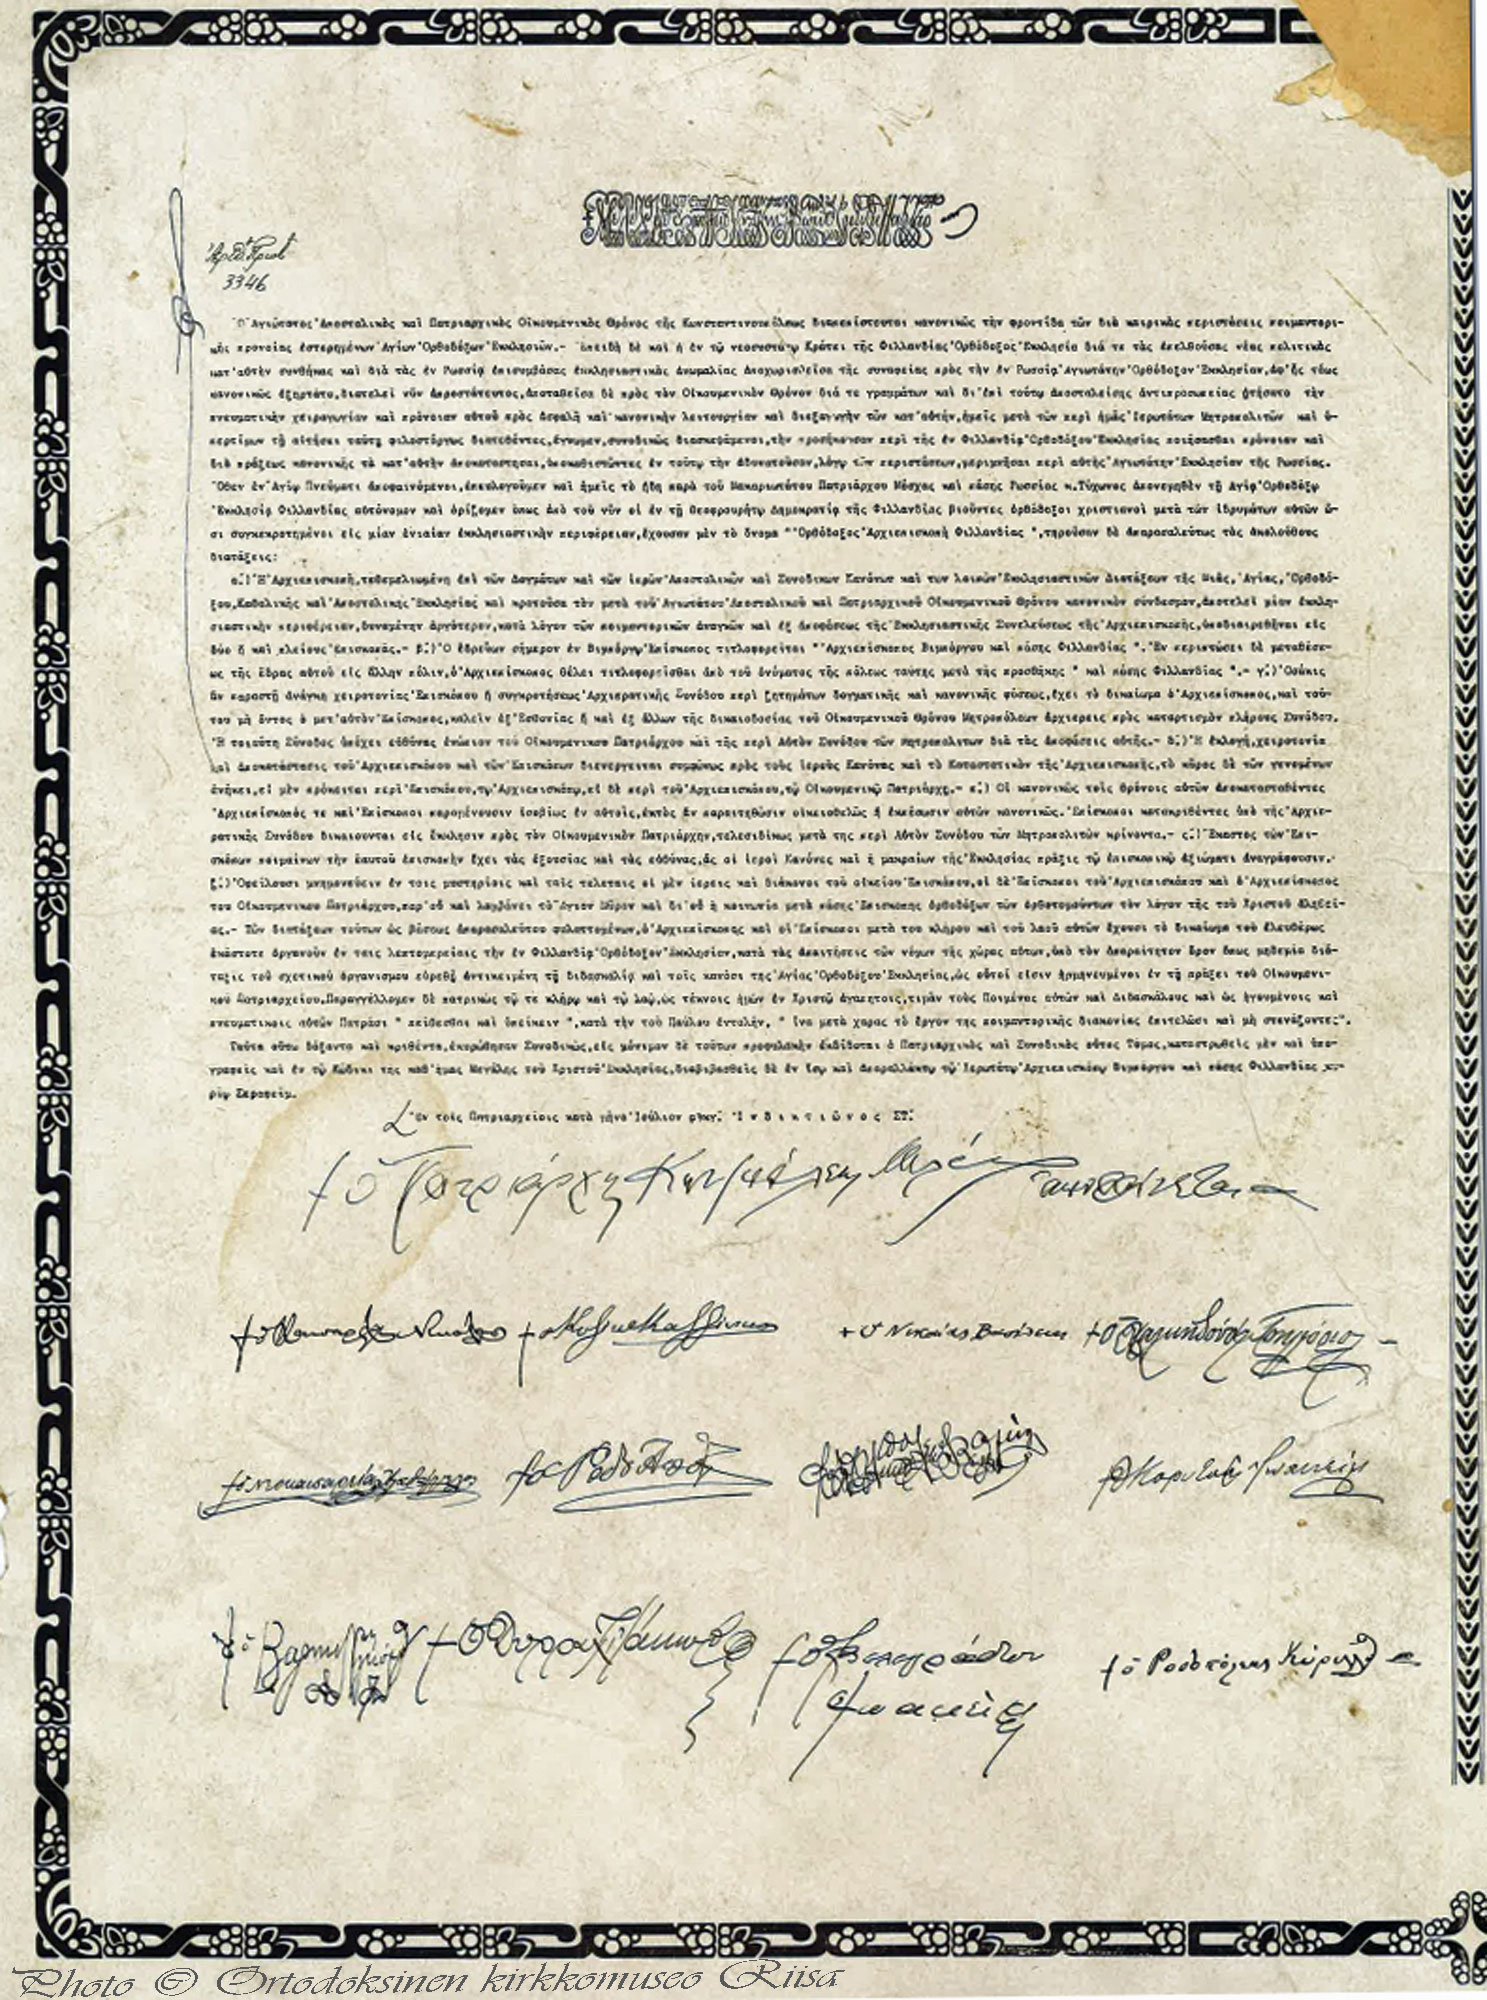 3346
Ὁ Ἁγιώτατος Ἀποστολικὸς καὶ Πατριαρχικὸς Οἰκουμενικὸς Θρόνος τῆς Κωνσταντινουπόλεως διαπεπίστευται κανονικῶς τὴν φροντίδα τῶν διὰ καιρικὰς περιστάσεις ποιμαντορι-
κῆς προνοίας ἐστερημένων Ἁγίων Ὀρθοδόξων Ἐκκλησιῶν.- Ἐπειδὴ δὲ καὶ ἡ ἐν τῷ νεοσυστάτῳ Κράτει τῆς Φιλλανδίας Ὀρθόδοξος Ἐκκλησία διά τε τὰς ἐπελθούσας νέας πολιτικὰς
κατ' αὐτὴν συνθήκας καὶ διὰ τὰς ἐν Ρωσσίᾳ ἐπισυμβάσας ἐκκλησιαστικὰς ἀνωμαλίας ἀποχωρισθεῖσα τῆς συναφείας πρὸς τὴν ἐν Ρωσσίᾳ Ἁγιωτάτην Ὀρθόδοξον Ἐκκλησίαν, ἀφ' ἧς τέως
κανονικῶς ἐξηρτᾶτο, διατελεῖ νῦν ἀπροστάτευτος, ἀποταθεῖσα δὲ πρὸς τὸν Οἰκουμενικὸν Θρόνον διά τε γραμμάτων καὶ δι' ἐπὶ τούτῳ ἀποσταλείσης ἀντιπροσωπείας ᾐτήσατο τὴν
πνευματικὴν χειραγωγίαν καὶ πρόνοιαν αὐτοῦ πρὸς ἀσφαλῆ καὶ κανονικὴν λειτουργίαν καὶ διεξαγωγὴν τῶν κατ' αὐτήν, ἡμεῖς μετὰ τῶν περὶ ἡμᾶς Ἱερωτάτων Μητροπολιτῶν καὶ ὑ-
περτίμων τῇ αἰτήσει ταύτῃ φιλοστόργως διατεθέντες, ἔγνωμεν, συνοδικῶς διασκεψάμενοι, τὴν προσήκουσαν περὶ τῆς ἐν Φιλλανδίᾳ Ὀρθοδόξου Ἐκκλησίας ποιήσασθαι πρόνοιαν καὶ
διὰ πράξεως κανονικῆς τὰ κατ' αὐτὴν ἀποκαταστῆσαι, ὑποκαθιστῶντες ἐν τούτῳ τὴν ἀδυνατοῦσαν, λόγῳ τῶν περιστάσεων, μεριμνῆσαι περὶ αὐτῆς Ἁγιωτάτην Ἐκκλησίαν τῆς Ρωσσίας.
Ὅθεν ἐν Ἁγίῳ Πνεύματι ἀποφαινόμενοι, ἐπευλογοῦμεν καὶ ἡμεῖς τὸ ἤδη παρὰ τοῦ Μακαριωτάτου Πατριάρχου Μόσχας καὶ πάσης Ρωσσίας κ. Τύχωνος ἀπονεμηθὲν τῇ Ἁγίᾳ Ὀρθοδόξῳ
Ἐκκλησίᾳ Φιλλανδίας αὐτόνομον καὶ ὁρίζομεν ὅπως ἀπὸ τοῦ νῦν οἱ ἐν τῇ θεοφρουρήτῳ Δημοκρατίᾳ τῆς Φιλλανδίας βιοῦντες ὀρθόδοξοι χριστιανοὶ μετὰ τῶν ἱδρυμάτων αὐτῶν ὦ-
σι συγκεκροτημένοι εἰς μίαν ἑνιαίαν ἐκκλησιαστικὴν περιφέρειαν, ἔχουσαν μὲν τὸ ὄνομα "Ὀρθόδοξος Ἀρχιεπισκοπὴ Φιλλανδίας", τηροῦσαν δὲ ἀπαρασαλεύτως τὰς ἀκολούθους
διατάξεις:
α.) Ἡ Ἀρχιεπισκοπή, τεθεμελιωμένη ἐπὶ τῶν Δογμάτων καὶ τῶν ἱερῶν Ἀποστολικῶν καὶ Συνοδικῶν Κανόνων καὶ τῶν λοιπῶν Ἐκκλησιαστικῶν Διατάξεων τῆς Μιᾶς, Ἁγίας, Ὀρθοδό-
ξου, Καθολικῆς καὶ Ἀποστολικῆς Ἐκκλησίας καὶ κρατοῦσα τὸν μετὰ τοῦ Ἁγιωτάτου Ἀποστολικοῦ καὶ Πατριαρχικοῦ Οἰκουμενικοῦ Θρόνου κανονικὸν σύνδεσμον, ἀποτελεῖ μίαν ἐκκλη-
σιαστικὴν περιφέρειαν, δυναμένην ἀργότερον, κατὰ λόγον τῶν ποιμαντορικῶν ἀναγκῶν καὶ ἐξ ἀποφάσεως τῆς Ἐκκλησιαστικῆς Συνελεύσεως τῆς Ἀρχιεπισκοπῆς, ὑποδιαιρεθῆναι εἰς
δύο ἢ καὶ πλείους Ἐπισκοπάς.- β.) Ὁ ἑδρεύων σήμερον ἐν Βιμπόργῳ Ἐπίσκοπος τιτλοφορεῖται "Ἀρχιεπίσκοπος Βιμπόργου καὶ πάσης Φιλλανδίας". Ἐν περιπτώσει δὲ μεταθέσε-
ως τῆς ἕδρας αὐτοῦ εἰς ἄλλην πόλιν, ὁ Ἀρχιεπίσκοπος θέλει τιτλοφορεῖσθαι ἀπὸ τοῦ ὀνόματος τῆς πόλεως ταύτης μετὰ τῆς προσθήκης "καὶ πάσης Φιλλανδίας".- γ.) Ὁσάκις
ἂν παραστῇ ἀνάγκη χειροτονίας Ἐπισκόπου ἢ συγκροτήσεως Ἀρχιερατικῆς Συνόδου περὶ ζητημάτων δογματικῆς καὶ κανονικῆς φύσεως, ἔχει τὸ δικαίωμα ὁ Ἀρχιεπίσκοπος, καὶ τού-
του μὴ ὄντος ὁ μετ' αὐτὸν Ἐπίσκοπος, καλεῖν ἐξ Ἐσθονίας ἢ καὶ ἐξ ἄλλων τῆς δικαιοδοσίας τοῦ Οἰκουμενικοῦ Θρόνου Μητροπόλεων ἀρχιερεῖς πρὸς καταρτισμὸν πλήρους Συνόδου.
Ἡ τοιαύτη Σύνοδος ὑπέχει εὐθύνας ἐνώπιον τοῦ Οἰκουμενικοῦ Πατριάρχου καὶ τῆς περὶ Αὐτὸν Συνόδου τῶν Μητροπολιτῶν διὰ τὰς ἀποφάσεις αὐτῆς.- δ.) Ἡ ἐκλογή, χειροτονία
καὶ ἀποκατάστασις τοῦ Ἀρχιεπισκόπου καὶ τῶν Ἐπισκόπων διενεργεῖται συμφώνως πρὸς τοὺς ἱεροὺς Κανόνας καὶ τὸ Καταστατικὸν τῆς Ἀρχιεπισκοπῆς, τὸ κῦρος δὲ τῶν γενομένων
ἀνήκει, εἰ μὲν πρόκειται περὶ Ἐπισκόπου, τῷ Ἀρχιεπισκόπῳ, εἰ δὲ περὶ τοῦ Ἀρχιεπισκόπου, τῷ Οἰκουμενικῷ Πατριάρχῃ.- ε.) Οἱ κανονικῶς τοῖς θρόνοις αὐτῶν ἀποκατασταθέντες
Ἀρχιεπίσκοπός τε καὶ Ἐπίσκοποι παραμένουσιν ἰσοβίως ἐν αὐτοῖς, ἐκτὸς ἂν παραιτηθῶσιν οἰκειοθελῶς ἢ ἐκπέσωσιν αὐτῶν κανονικῶς. Ἐπίσκοποι κατακριθέντες ὑπὸ τῆς Ἀρχιε-
ρατικῆς Συνόδου δικαιοῦνται εἰς ἔκκλησιν πρὸς τὸν Οἰκουμενικὸν Πατριάρχην, τελεσιδίκως μετὰ τῆς περὶ Αὐτὸν Συνόδου τῶν Μητροπολιτῶν κρίνοντα.- ς.) Ἕκαστος τῶν Ἐπι-
σκόπων ποιμαίνων τὴν ἑαυτοῦ ἐπισκοπὴν ἔχει τὰς ἐξουσίας καὶ τὰς εὐθύνας, ἃς οἱ ἱεροὶ Κανόνες καὶ ἡ μακραίων τῆς Ἐκκλησίας πρᾶξις τῷ ἐπισκοπικῷ ἀξιώματι ἀναγράφουσιν.-
ζ.) Ὀφείλουσι μνημονεύειν ἐν τοῖς μυστηρίοις καὶ ταῖς τελεταῖς οἱ μὲν ἱερεῖς καὶ διάκονοι τοῦ οἰκείου Ἐπισκόπου, οἱ δὲ Ἐπίσκοποι τοῦ Ἀρχιεπισκόπου καὶ ὁ Ἀρχιεπίσκοπος
τοῦ Οἰκουμενικοῦ Πατριάρχου, παρ' οὗ καὶ λαμβάνει τὸ Ἅγιον Μύρον καὶ δι' οὗ ἡ κοινωνία μετὰ πάσης Ἐπισκοπῆς ὀρθοδόξων τῶν ὀρθοτομούντων τὸν λόγον τῆς τοῦ Χριστοῦ ἀληθεί-
ας.- Τῶν διατάξεων τούτων ὡς βάσεως ἀπαρασαλεύτου φυλαττομένων, ὁ Ἀρχιεπίσκοπος καὶ οἱ Ἐπίσκοποι μετὰ τοῦ κλήρου καὶ τοῦ λαοῦ αὐτῶν ἔχουσι τὸ δικαίωμα τοῦ ἐλευθέρως
ἑκάστοτε ὀργανοῦν ἐν ταῖς λεπτομερείαις τὴν ἐν Φιλλανδίᾳ Ὀρθόδοξον Ἐκκλησίαν, κατὰ τὰς ἀπαιτήσεις τῶν νόμων τῆς χώρας αὐτῶν, ὑπὸ τὸν ἀπαραίτητον ὅρον ὅπως μηδεμία διά-
ταξις τοῦ σχετικοῦ ὀργανισμοῦ εὑρεθῇ ἀντικειμένη τῇ διδασκαλίᾳ καὶ τοῖς κανόσι τῆς Ἁγίας Ὀρθοδόξου Ἐκκλησίας, ὡς οὗτοί εἰσιν ἡρμηνευμένοι ἐν τῇ πράξει τοῦ Οἰκουμενι-
κοῦ Πατριαρχείου. Παραγγέλλομεν δὲ πατρικῶς τῷ τε κλήρῳ καὶ τῷ λαῷ, ὡς τέκνοις ἡμῶν ἐν Χριστῷ ἀγαπητοῖς, τιμᾶν τοὺς Ποιμένας αὐτῶν καὶ Διδασκάλους καὶ ὡς ἡγουμένοις καὶ
πνευματικοῖς αὐτῶν Πατράσι "πείθεσθαι καὶ ὑπείκειν", κατὰ τὴν τοῦ Παύλου ἐντολήν, "ἵνα μετὰ χαρᾶς τὸ ἔργον τῆς ποιμαντορικῆς διακονίας ἐπιτελῶσι καὶ μὴ στενάζοντες".
Ταῦτα οὕτω δόξαντα καὶ κριθέντα, ἐκυρώθησαν Συνοδικῶς, εἰς μόνιμον δὲ τούτων προφυλακὴν ἐκδίδοται ὁ Πατριαρχικὸς καὶ Συνοδικὸς οὗτος Τόμος, καταστρωθεὶς μὲν καὶ ὑπο-
γραφεὶς καὶ ἐν τῷ Κώδικι τῆς καθ' ἡμᾶς Μεγάλης τοῦ Χριστοῦ Ἐκκλησίας, διαβιβασθεὶς δὲ ἐν ἴσῳ καὶ ἀπαραλλάκτῳ τῷ Ἱερωτάτῳ Ἀρχιεπισκόπῳ Βιμπόργου καὶ πάσης Φιλλανδίας κυ-
ρίῳ Σεραφείμ.
Ἐν τοῖς Πατριαρχείοις κατὰ μῆνα Ἰούλιον Ἰνδικτιῶνος ΣΤ.
† ὁ Πατριάρχης Μελέτιος ἀποφαίνεται
+ ὁ Νικαίας Βασίλειος
† ὁ Χαλκηδόνος Γρηγόριος
† ὁ Ροδοπόλεως Κύριλλος
Photo © Ortodoksinen kirkkomuseo Riisa